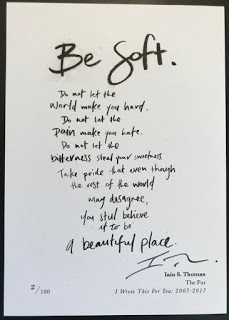 Be Soft.
Do not let the
world make you hard.
Do not let the
Pain make you hate.
Do not let the
bitterness steal your sweetness
Take pride that even though
the rest of the world
may disagree,
you still believe
it to be
a beautiful place.
Iain S. Thomas
The Fur
2/100
I Wrote This For You: 2007-2017